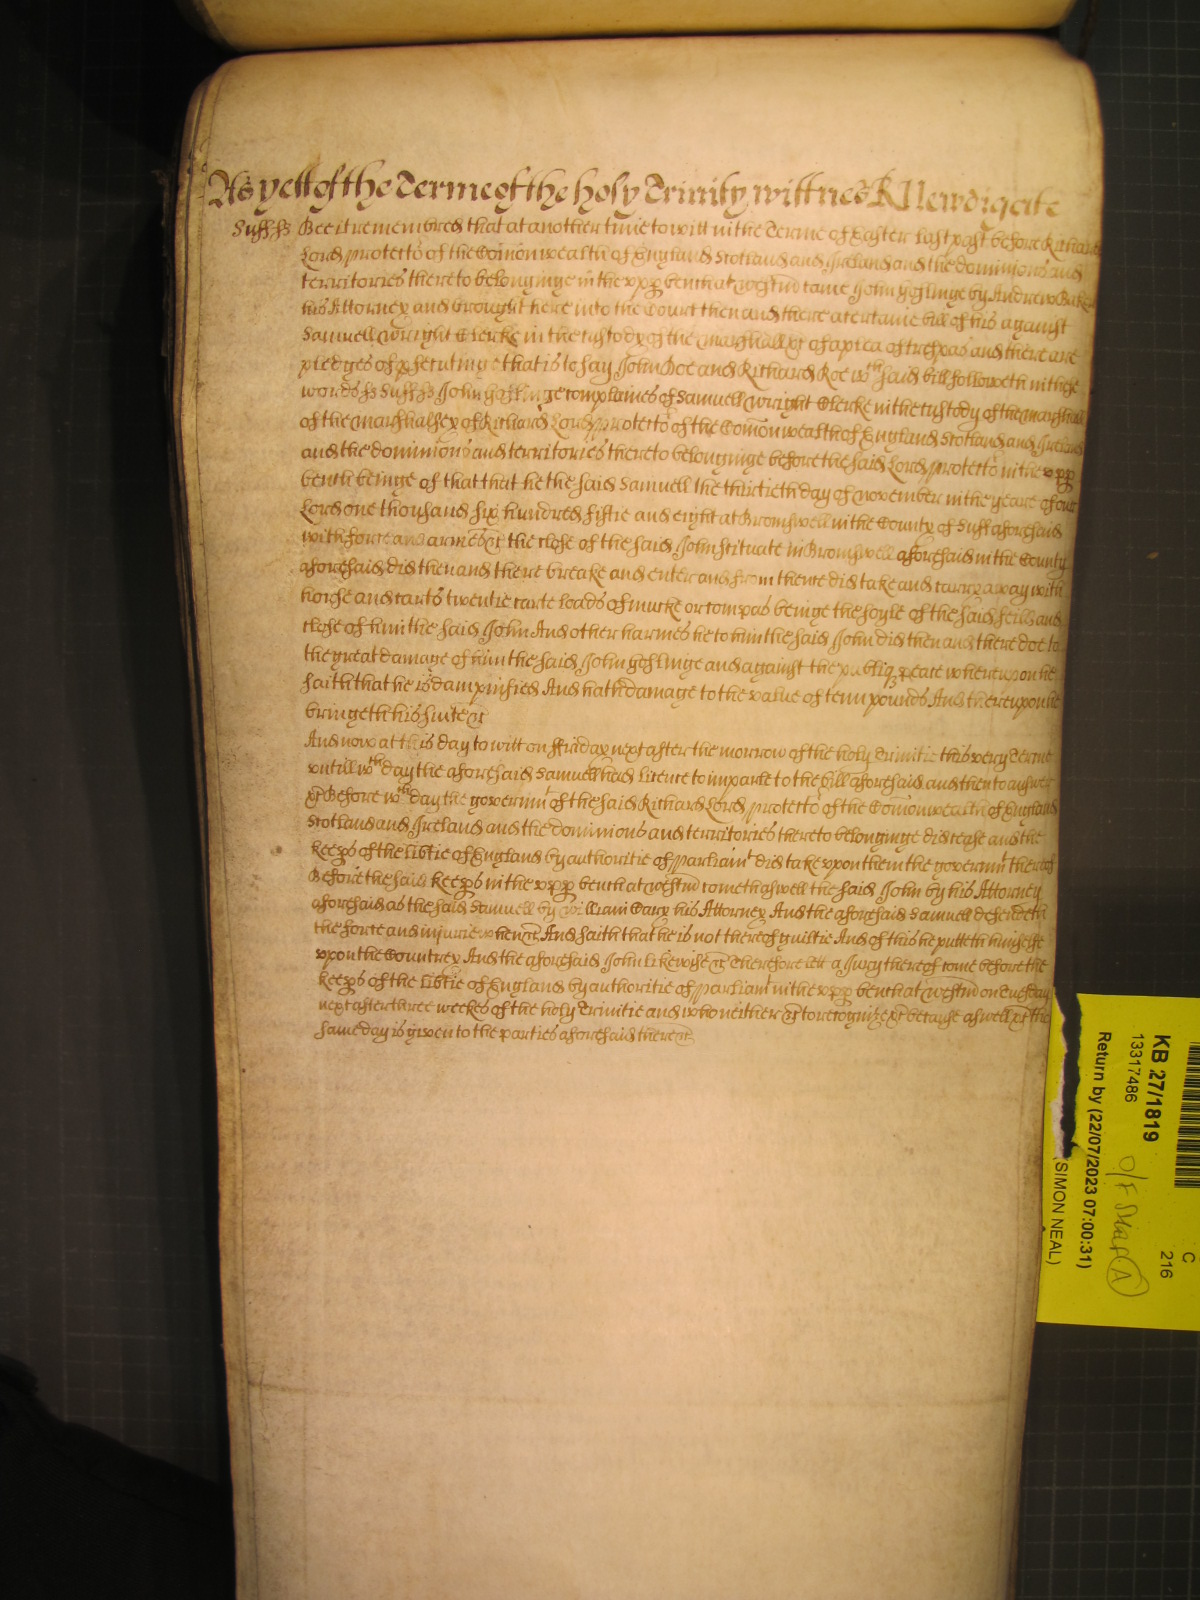 As yett of the Terme of the holy Trinity wittnes R Newdigate
Suff ss Bee it remembred that at another time to witt in the Terme of Easter last past before Richard
Lord protecto of the Comonwealth of England Scotland and Ireland and the dominions and
territories thereto belonginge in the vpp bench at Westm came John Goslinge by Andrew Baker
his Attorney and brought here into the Court then and there a certaine bill of his against
Samuell Wright Clerke in the custody of the Marshall &c of a plea of trespas and there are
pledges of psecutinge that is to say John Doe and Richard Roe wch said bill followeth in these
words ss Suff ss John Goslinge complaines of Samuell Wright Clerke in the custody of the Marshall
of the Marshalsey of Richard Lord protecto of the Comonwealth of England Scotland and Ireland
and the dominions and territories thereto belonginge before the said Lord protecto in the vpp
bench beinge of that that he the said Samuell the thirtieth day of November in the yeare of our
Lord one thousand six hundred fiftie and eight at Bromswell in the County of Suff aforesaid
with force and armes &c the close of the said John scituate in Bromswell aforesaid in the County
aforesaid did then and there breake and enter and from thence did take and carry away with
horse and carts twentie carte loads of mucke or compas beinge the soyle of the said feild and
close of him the said John And other harmes he to him the said John did then and there doe to
the great damage of him the said John Goslinge and against the publiq peace whereupon he
saith that he is dampnified And hath damage to the value of tenn pounds And thereupon he
bringeth his suite &c
And now at this day to witt on ffriday next after the morrow of the holy Trinitie this very Terme
vntill wch day the aforesaid Samuell had licence to imparle to the bill aforesaid and then to answer
&c Before wch day the governmt of the said Richard Lord protecto of the Comonwealth of England
Scotland and Ireland and the dominions and territories thereto belonginge did cease and the
keeps of the libtie of England by authoritie of Parliamt did take vpon them the governmt thereof
Before the said keeps in the vpp bench at Westm cometh aswell the said John by his Attorney
aforesaid as the said Samuell by William Cary his Attorney And the aforesaid Samuell defendeth
the force and injurie when &c And saith that he is not thereof guiltie And of this he putteth himselfe
vpon the Countrey And the aforesaid John likewise &c Therefore lett a Jury thereof come before the
keeps of the libtie of England by authoritie of Parliamt in the vpp bench at Westm on Tuesday
next after three weekes of the holy Trinitie and who neither &c to recognize &c because aswell &c the
same day is given to the parties aforesaid there &c
KB 27/1819
13317486
Return by (22/07/2023 07:00:31)
(SIMON NEAL)
C
216
O/F
A